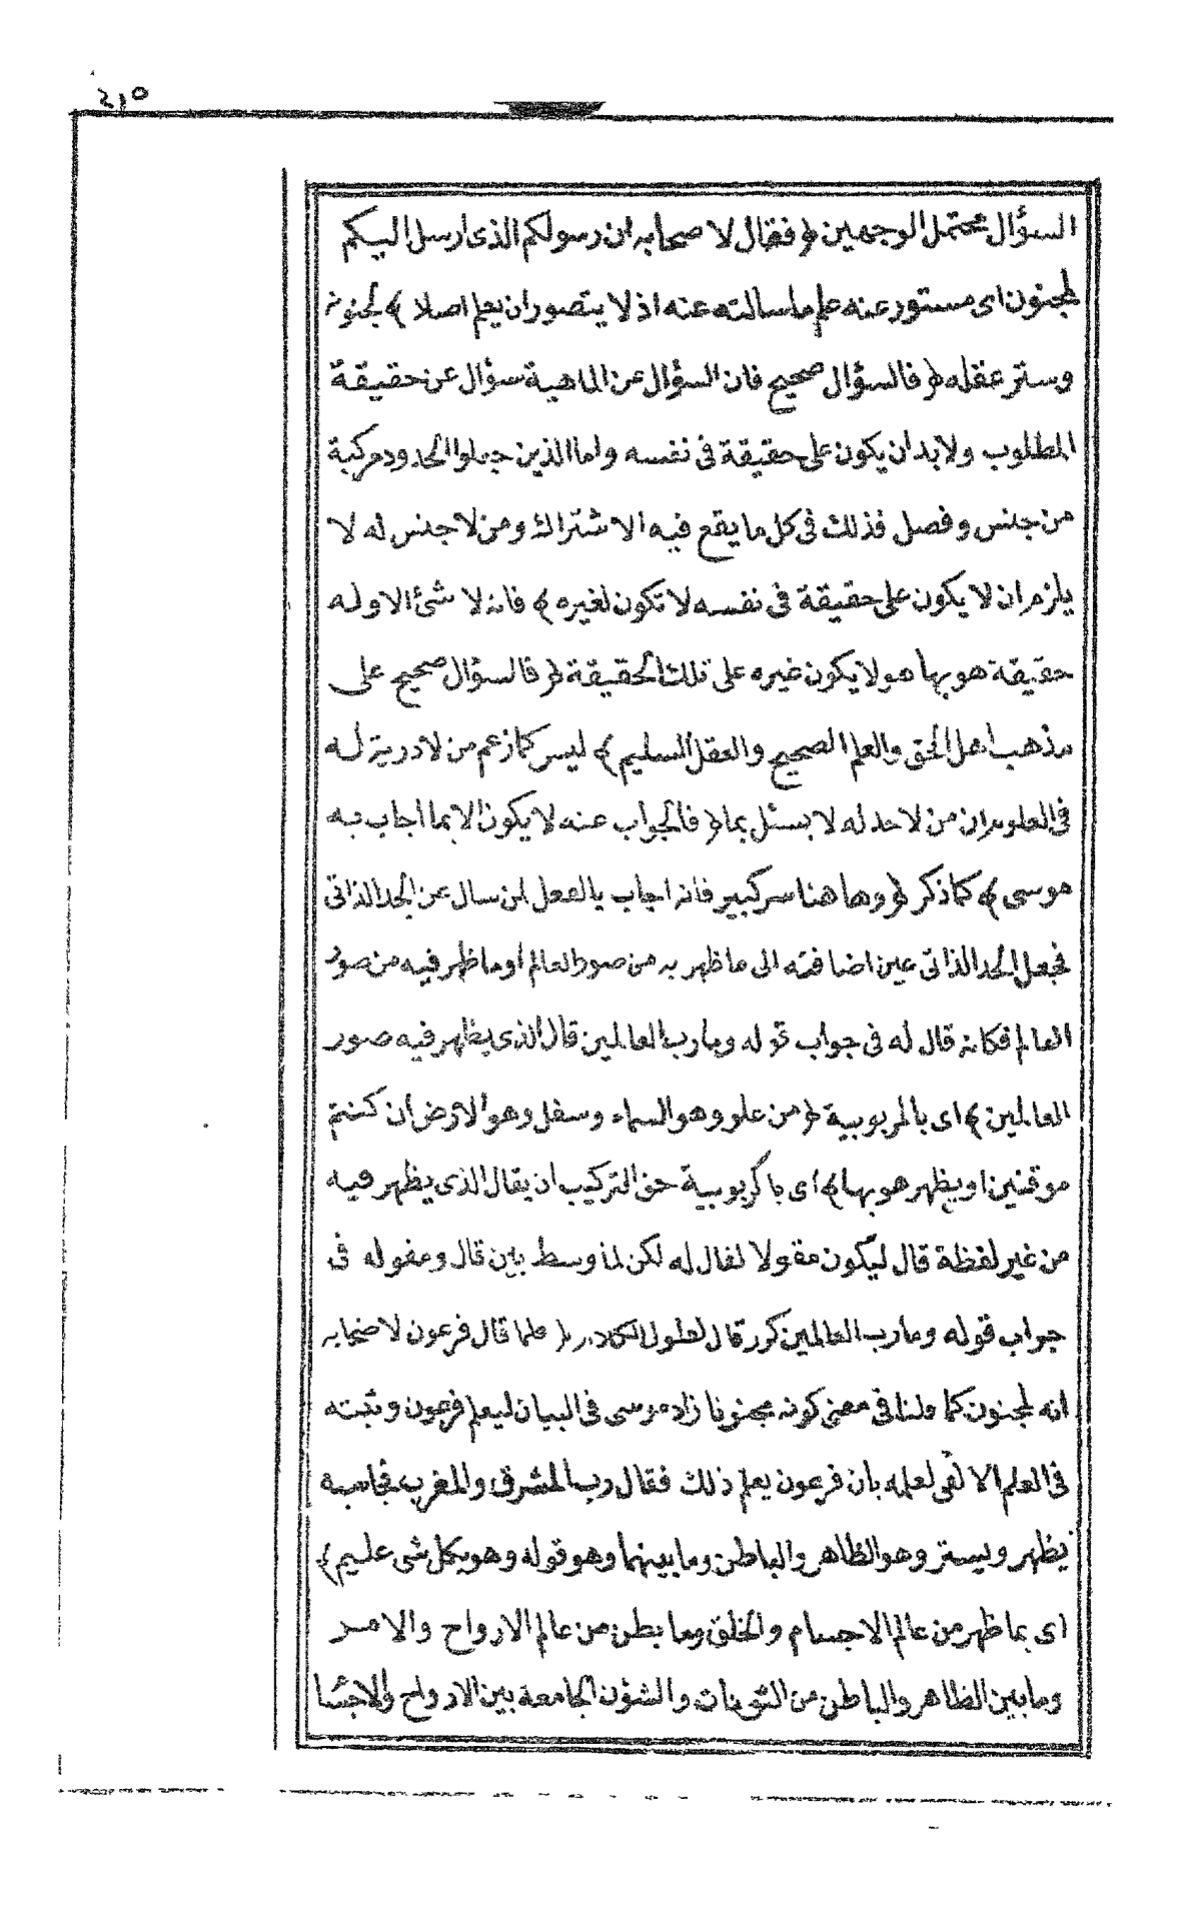 ٤١٥
السؤال محتمل الوجهين ﴿ فقال لاصحابه ان رسولكم الذى ارسل اليكم
لمجنون اى مستور عنه علم ما سالته عنه اذ لا يتصور ان يعلم اصلا ﴾ لجنونه
وستر عقله ﴿ فالسؤال صحيح فان السؤال عن الماهية سؤال عن حقيقة
المطلوب ولابد ان يكون على حقيقة فى نفسه واما الذين جعلوا الحدود مركبة
من جنس وفصل فذلك فى كل ما يقع فيه الاشتراك ومن لا جنس له لا
يلزم ان لا يكون على حقيقة فى نفسه لا تكون لغيره ﴾ فانه لا شئ الا وله
حقيقة هو بها هو لا يكون غيره على تلك الحقيقة ﴿ فالسؤال صحيح على
مذهب اهل الحق والعلم الصحيح والعقل السليم ﴾ ليس كما زعم من لا درية له
فى العلوم ان من لا حد له لا يسئل بما ﴿ فالجواب عنه لا يكون الا بما اجاب به
موسى ﴾ كما ذكر ﴿ وها هنا سر كبير فانه اجاب بالفعل لمن سال عن الحد الذاتى
فجعل الحد الذاتى عين اضافته الى ما ظهر به من صور العالم او ما ظهر فيه من صور
العالم فكانه قال له فى جواب قوله وما رب العالمين قال الذى يظهر فيه صور
العالمين ﴾ اى بالمربوبية ﴿ من علو وهو السماء وسفل وهو الارض ان كنتم
موقنين او يظهر هو بها ﴾ اى بالربوبية حق التركيب ان يقال الذى يظهر فيه
من غير لفظة قال ليكون مقولا لقال له لكن لما وسط بين قال ومقوله فى
جواب قوله وما رب العالمين كرر قال لطول الكلام ﴿ فلما قال فرعون لاصحابه
انه لمجنون كما قلنا فى معنى كونه مجنونا زاد موسى فى البيان ليعلم فرعون رتبته
فى العلم الالهى لعلمه بان فرعون يعلم ذلك فقال رب المشرق والمغرب فجاء بما
يظهر ويستر وهو الظاهر والباطن وما بينهما وهو قوله وهو بكل شى عليم ﴾
اى بما ظهر من عالم الاجسام والخلق وما بطن من عالم الارواح والامر
وما بين الظاهر والباطن من التعينات والشؤن الجامعة بين الارواح والاجسا